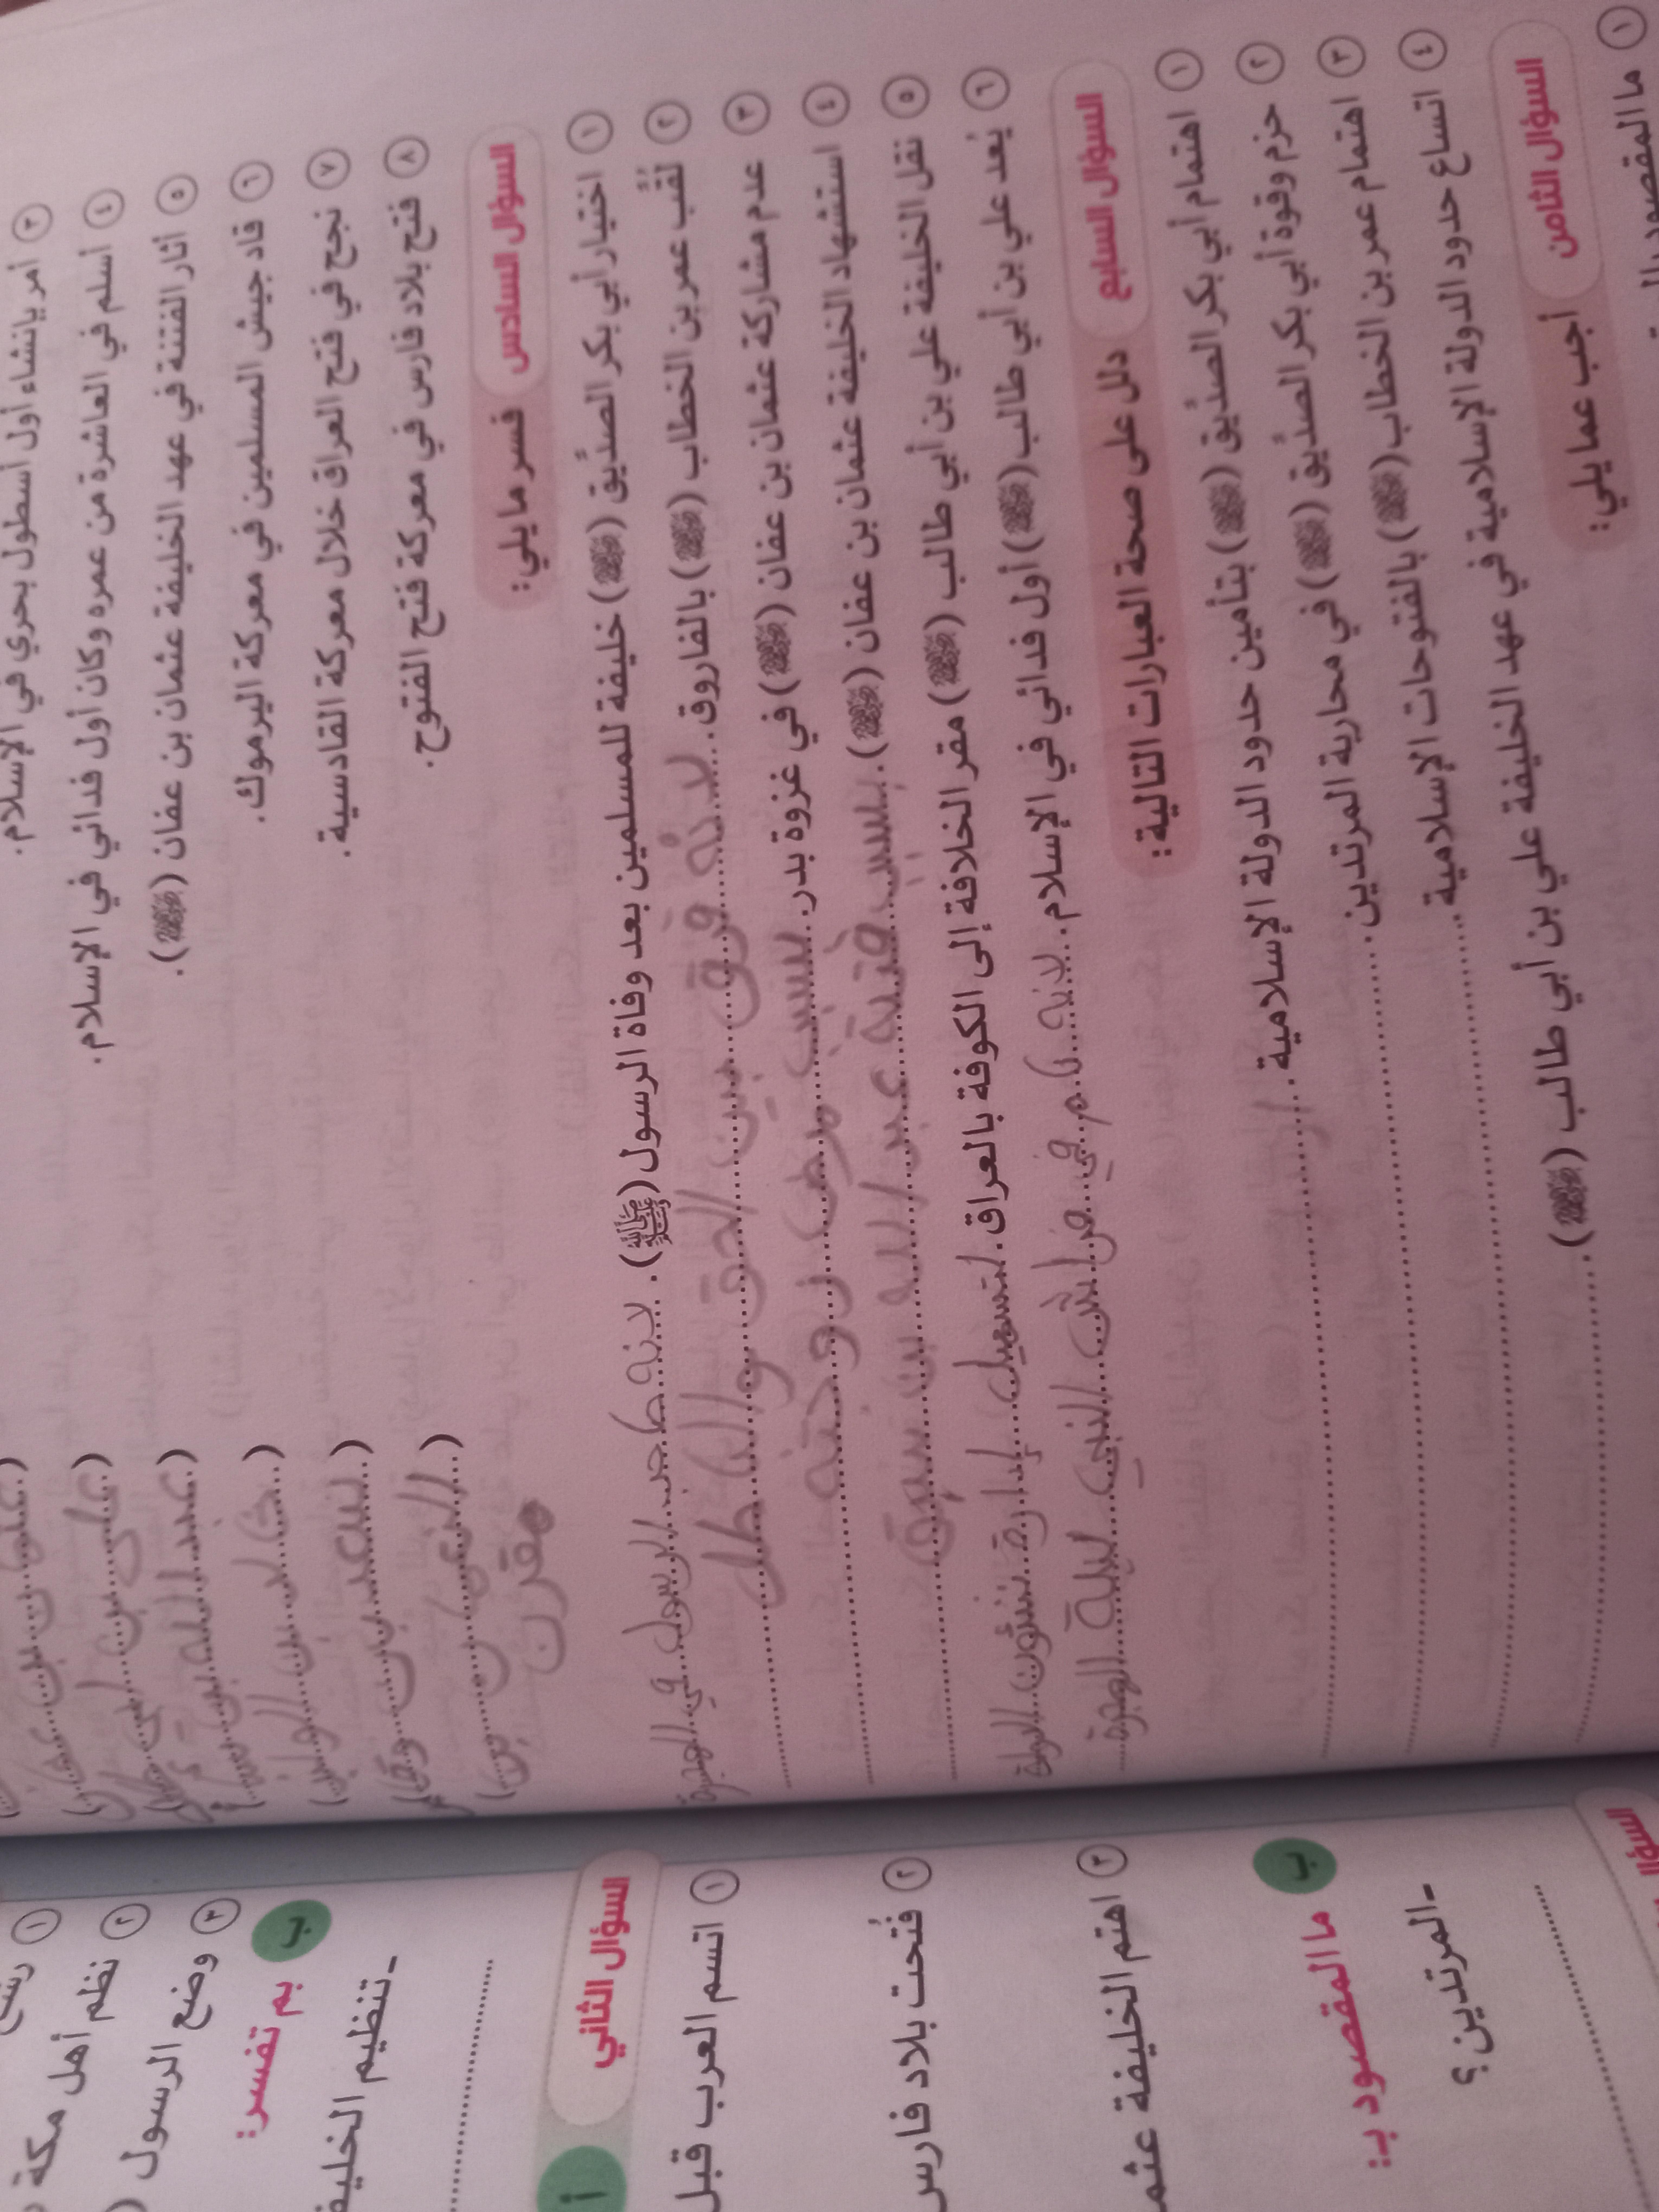 ٣ أمر بإنشاء أول أسطول بحري في الإسلام. (عثمان بن عفان)
٤ أسلم في العاشرة من عمره وكان أول فدائي في الإسلام. (علي بن أبي طالب)
٥ أثار الفتنة في عهد الخليفة عثمان بن عفان (رضي الله عنه). (عبد الله بن سبأ)
٦ قاد جيش المسلمين في معركة اليرموك. (خالد بن الوليد)
٧ نجح في فتح العراق خلال معركة القادسية. (سعد بن وقاص)
٨ فتح بلاد فارس في معركة فتح الفتوح. (النعمان بن
مقرن
السؤال السادس فسر ما يلي:
١ اختيار أبي بكر الصدِّيق (رضي الله عنه) خليفة للمسلمين بعد وفاة الرسول (ﷺ). لانه صاحب الرسول في الهجرة
٢ لُقِّب عمر بن الخطاب (رضي الله عنه) بالفاروق. لانه فرق بين الحق والباطل
٣ عدم مشاركة عثمان بن عفان (رضي الله عنه) في غزوة بدر. بسبب مرض زوجته
٤ استشهاد الخليفة عثمان بن عفان (رضي الله عنه). بسبب فتنة عبد الله بن سبأ
٥ نقل الخليفة علي بن أبي طالب (رضي الله عنه) مقر الخلافة إلى الكوفة بالعراق. لتسهيل إدارة شئون الدولة
٦ يُعد علي بن أبي طالب (رضي الله عنه) أول فدائي في الإسلام. لانه نام في فراش النبي ليلة الهجرة
السؤال السابع دلل على صحة العبارات التالية:
١ اهتمام أبي بكر الصدِّيق (رضي الله عنه) بتأمين حدود الدولة الإسلامية.
٢ حزم وقوة أبي بكر الصدِّيق (رضي الله عنه) في محاربة المرتدين.
٣ اهتمام عمر بن الخطاب (رضي الله عنه) بالفتوحات الإسلامية.
٤ اتساع حدود الدولة الإسلامية في عهد الخليفة علي بن أبي طالب (رضي الله عنه).
السؤال الثامن أجب عما يلي:
١ ما المقصود
٢ نظم أهل مكة
٣ وضع الرسول (
ب بم تفسر:
-تنظيم الخليف
السؤال الثاني
أ
١ اتسم العرب قبل
٢ فُتحت بلاد فارس
٣ اهتم الخليفة عثم
ب ما المقصود بـ:
-المرتدين؟